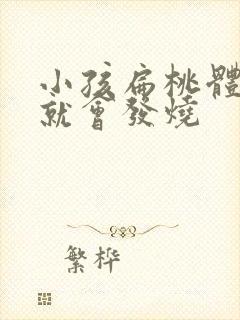 小孩扁桃體
就會發燒
繁桦